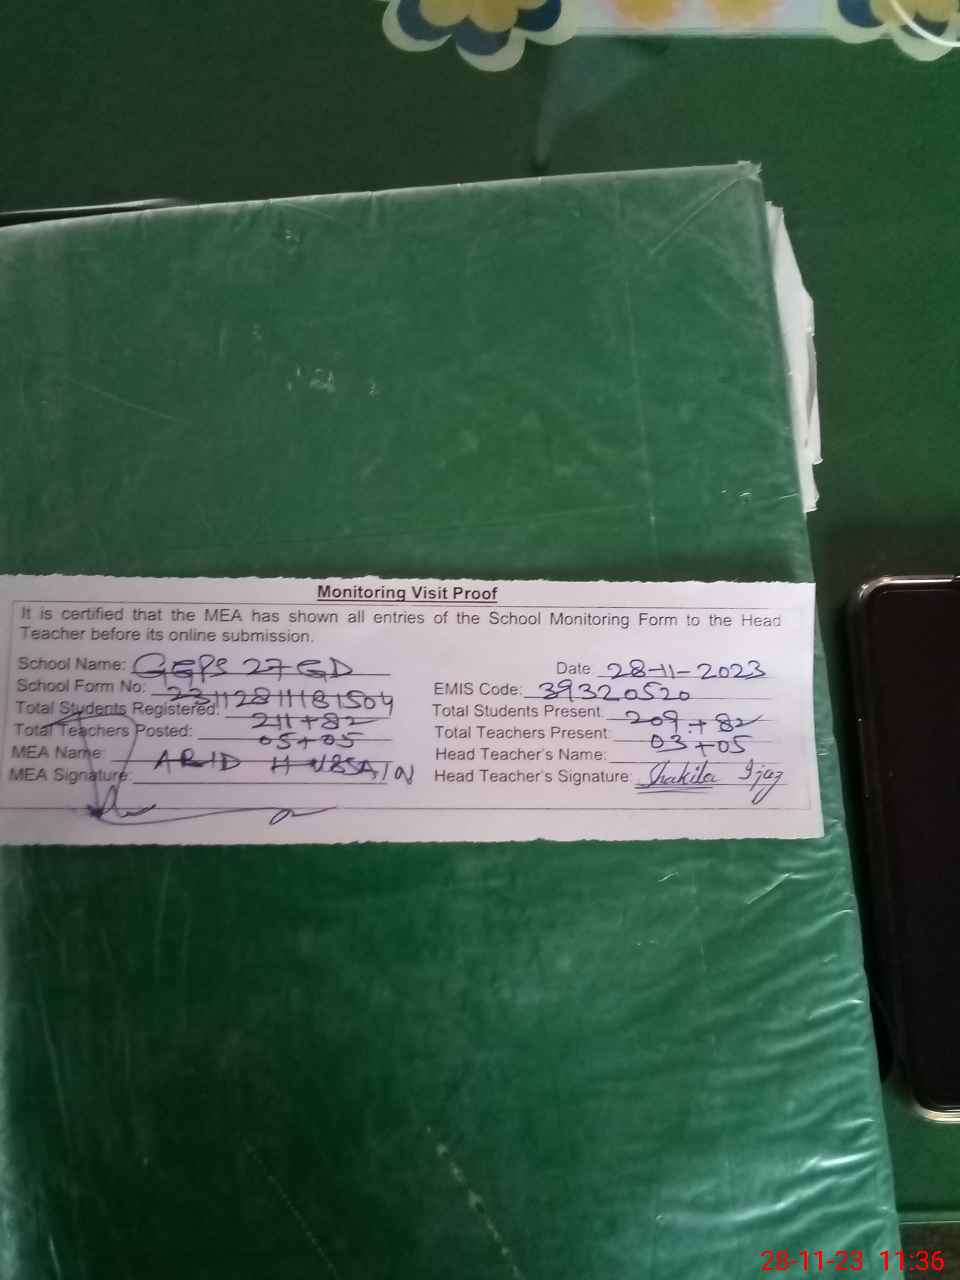 Monitoring Visit Proof
It is certified that the MEA has shown all entries of the School Monitoring Form to the Head
Teacher before its online submission.
School Name: GEPS 27 GD Date 28-11-2023
School Form No: 23112811181504 EMIS Code: 39320520
Total Students Registered: 211+82 Total Students Present: 209+82
Total Teachers Posted: 05+05 Total Teachers Present: 03+05
MEA Name: HUSSAIN Head Teacher's Name:
MEA Signature: Head Teacher's Signature: Shakila Ijaz
28-11-23 11:36